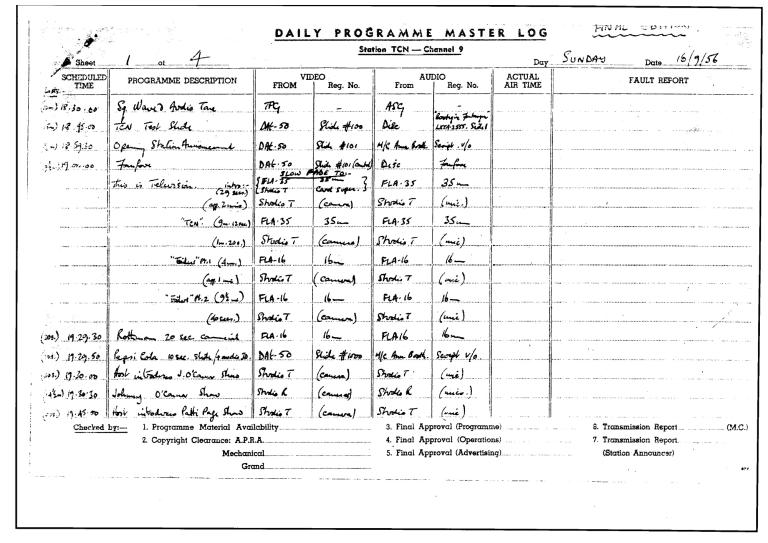 DAILY PROGRAMME MASTER LOG
FINAL EDITION
Station TCN — Channel 9
Sheet 1 of 4 Day SUNDAY Date 16/9/56
SCHEDULED TIME PROGRAMME DESCRIPTION VIDEO FROM Reg. No. AUDIO From Reg. No. ACTUAL AIR TIME FAULT REPORT
18.30.00 Sq Wave & Audio Tone TPG - ASG -
18.45.00 TCN Test Slide DAL-50 Slide #100 Disc Side 1
18.59.30 Opening Station Announcement DAL-50 Slide #101 M/C Ann Booth Script v/o
19.00.00 Fanfare DAL-50 Slide #101 (contd) Disc Fanfare
SLOW FADE TO:-
This is Television. intro:- (29 secs.) { FLA-35 35m } FLA-35 35m
Studio T Card super.
(app. 2 mins) Studio T (camera) Studio T (mic.)
"TCN". (9m. 12sec) FLA-35 35m FLA-35 35m
(1m. 20s.) Studio T (camera) Studio T (mic)
Pt.1 FLA-16 16m FLA-16 16m
(app. 1 min) Studio T (camera) Studio T (mic)
Pt.2 (9½m) FLA-16 16m FLA-16 16m
(40 secs.) Studio T (camera) Studio T (mic)
(20s.) 19.29.30 Rothmans 20 sec. commercial FLA-16 16m FLA16 16m
(10s.) 19.29.50 Pepsi Cola 10 sec. slide/audio ID. DAL-50 Slide #1000 M/C Ann Booth. Script v/o
19.30.00 Host introduces J. O'Connor Show Studio T (camera) Studio T (mic)
19.30.30 Johnny O'Connor Show Studio R (camera) Studio R (mics.)
19.45.00 Host introduces Patti Page Show Studio T (camera) Studio T (mic)
Checked by:— 1. Programme Material Availability 3. Final Approval (Programme) 6. Transmission Report (M.C.)
2. Copyright Clearance: A.P.R.A. 4. Final Approval (Operations) 7. Transmission Report
Mechanical 5. Final Approval (Advertising) (Station Announcer)
Grand